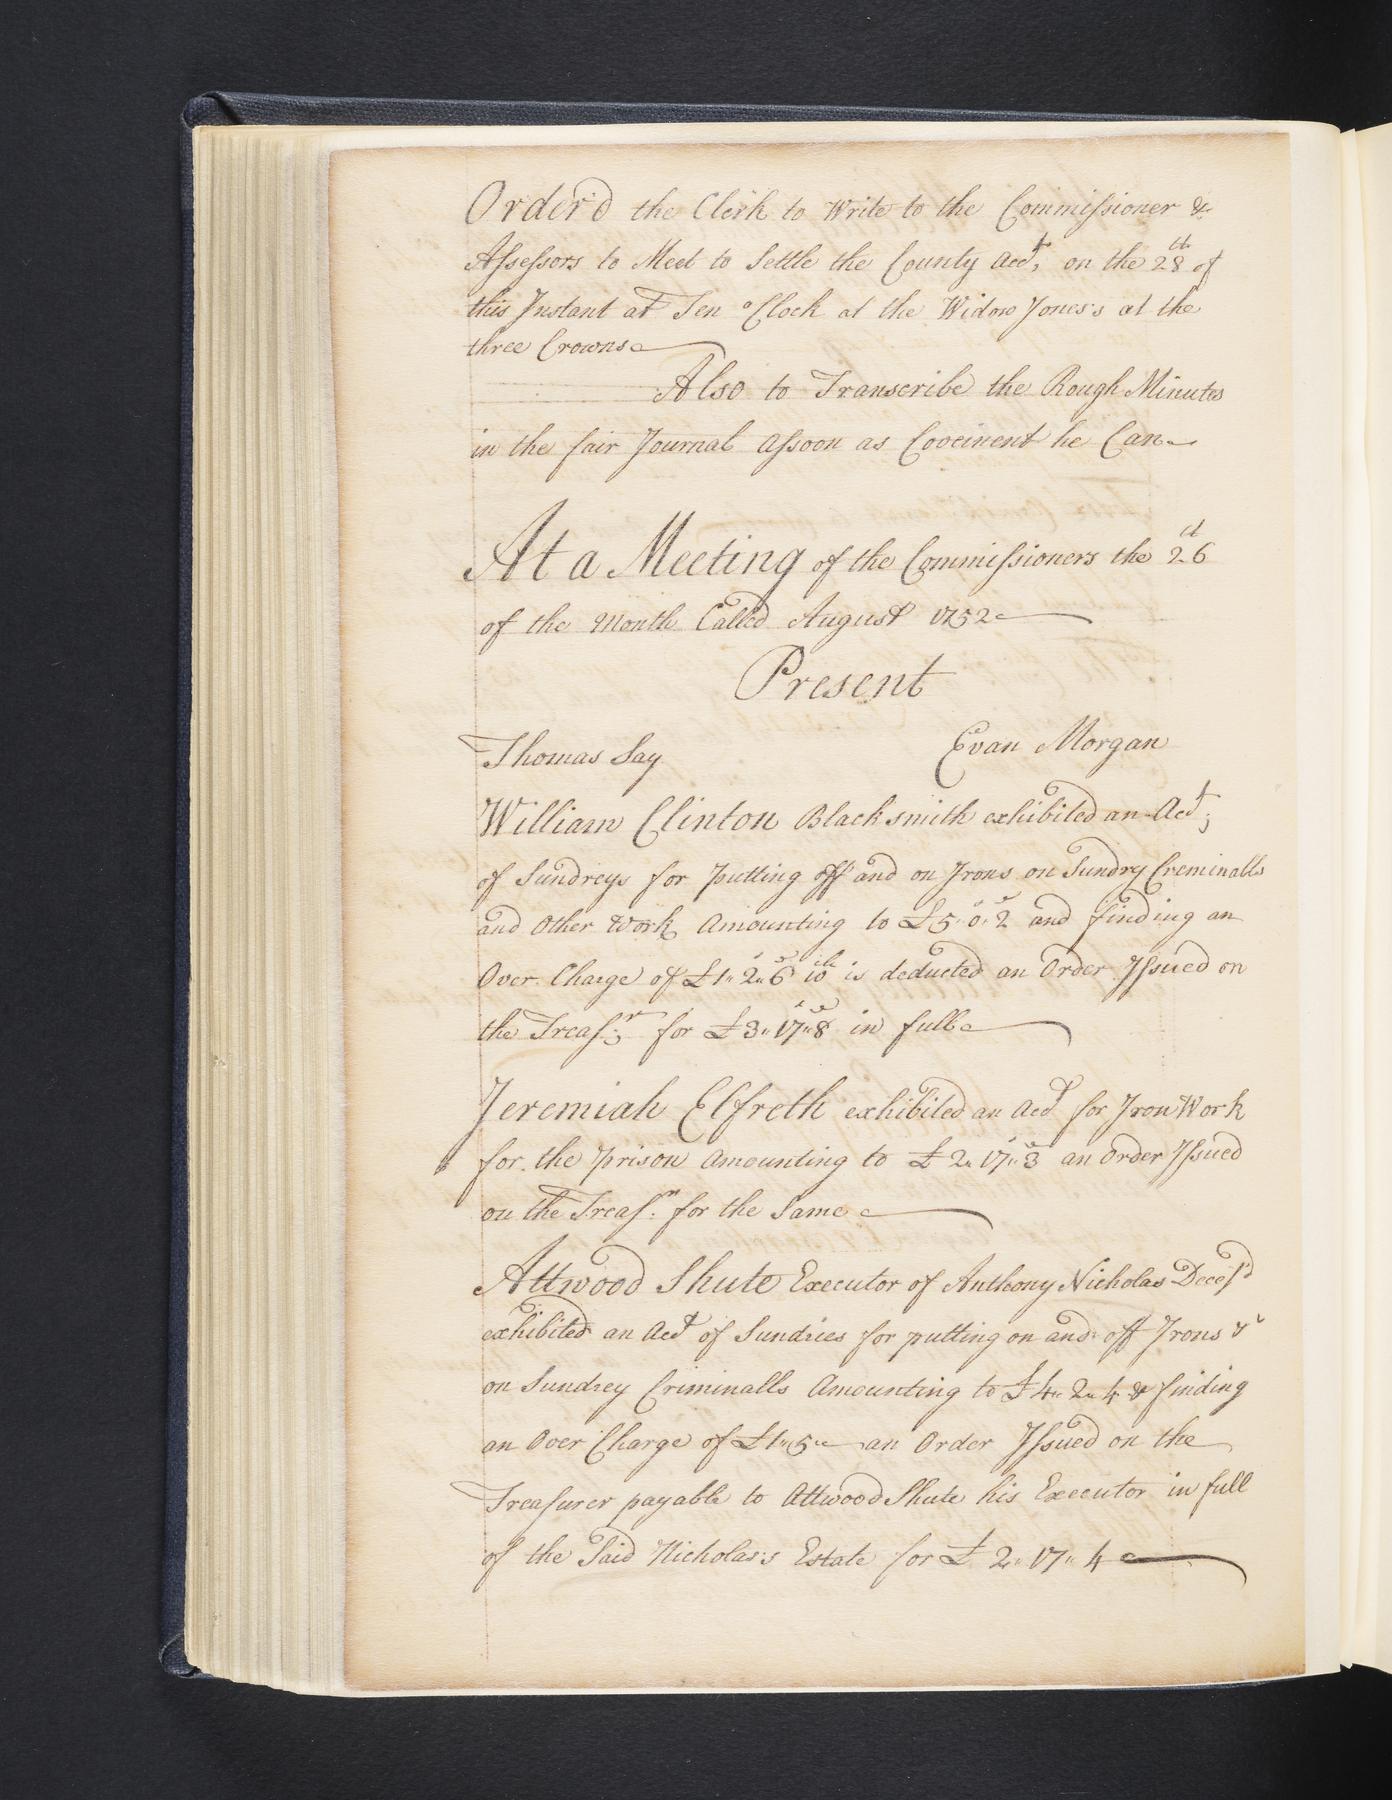 Order'd the Clerk to Write to the Commissioner &
Assessors to Meet to Settle the County Acct, on the 28th of
this Instant at Ten oClock at the Widow Jones's at the
three Crowns
Also to Transcribe the Rough Minutes
in the fair Journal assoon as he Can
At a Meeting of the Commissioners the 26th
of the Month Called August 1752
Present
Thomas Say Evan Morgan
William Clinton Blacksmith exhibited an Acct,
of Sundreys for putting off and on Irons on Sundry Creminalls
and Other Work Amounting to £5"0"2 and finding an
Over Charge of £1"2"6 is deducted an Order Issued on
the Treasr for £3"17"8 in full
Jeremiah Elfreth exhibited an Acct for Iron Work
for the prison Amounting to £2"17"3 an Order Issued
on the Treasr for the Same
Attwood Shute Executor of Anthony Nicholas Deces'd
exhibited an Acct of Sundries for putting on and off Irons &c
on Sundrey Criminalls Amounting to £4"2"4 & finding
an Over Charge of £1"5" an Order Issued on the
Treasurer payable to Attwood Shute his Executor in full
of the Said Nicholas's Estate for £2"17"4